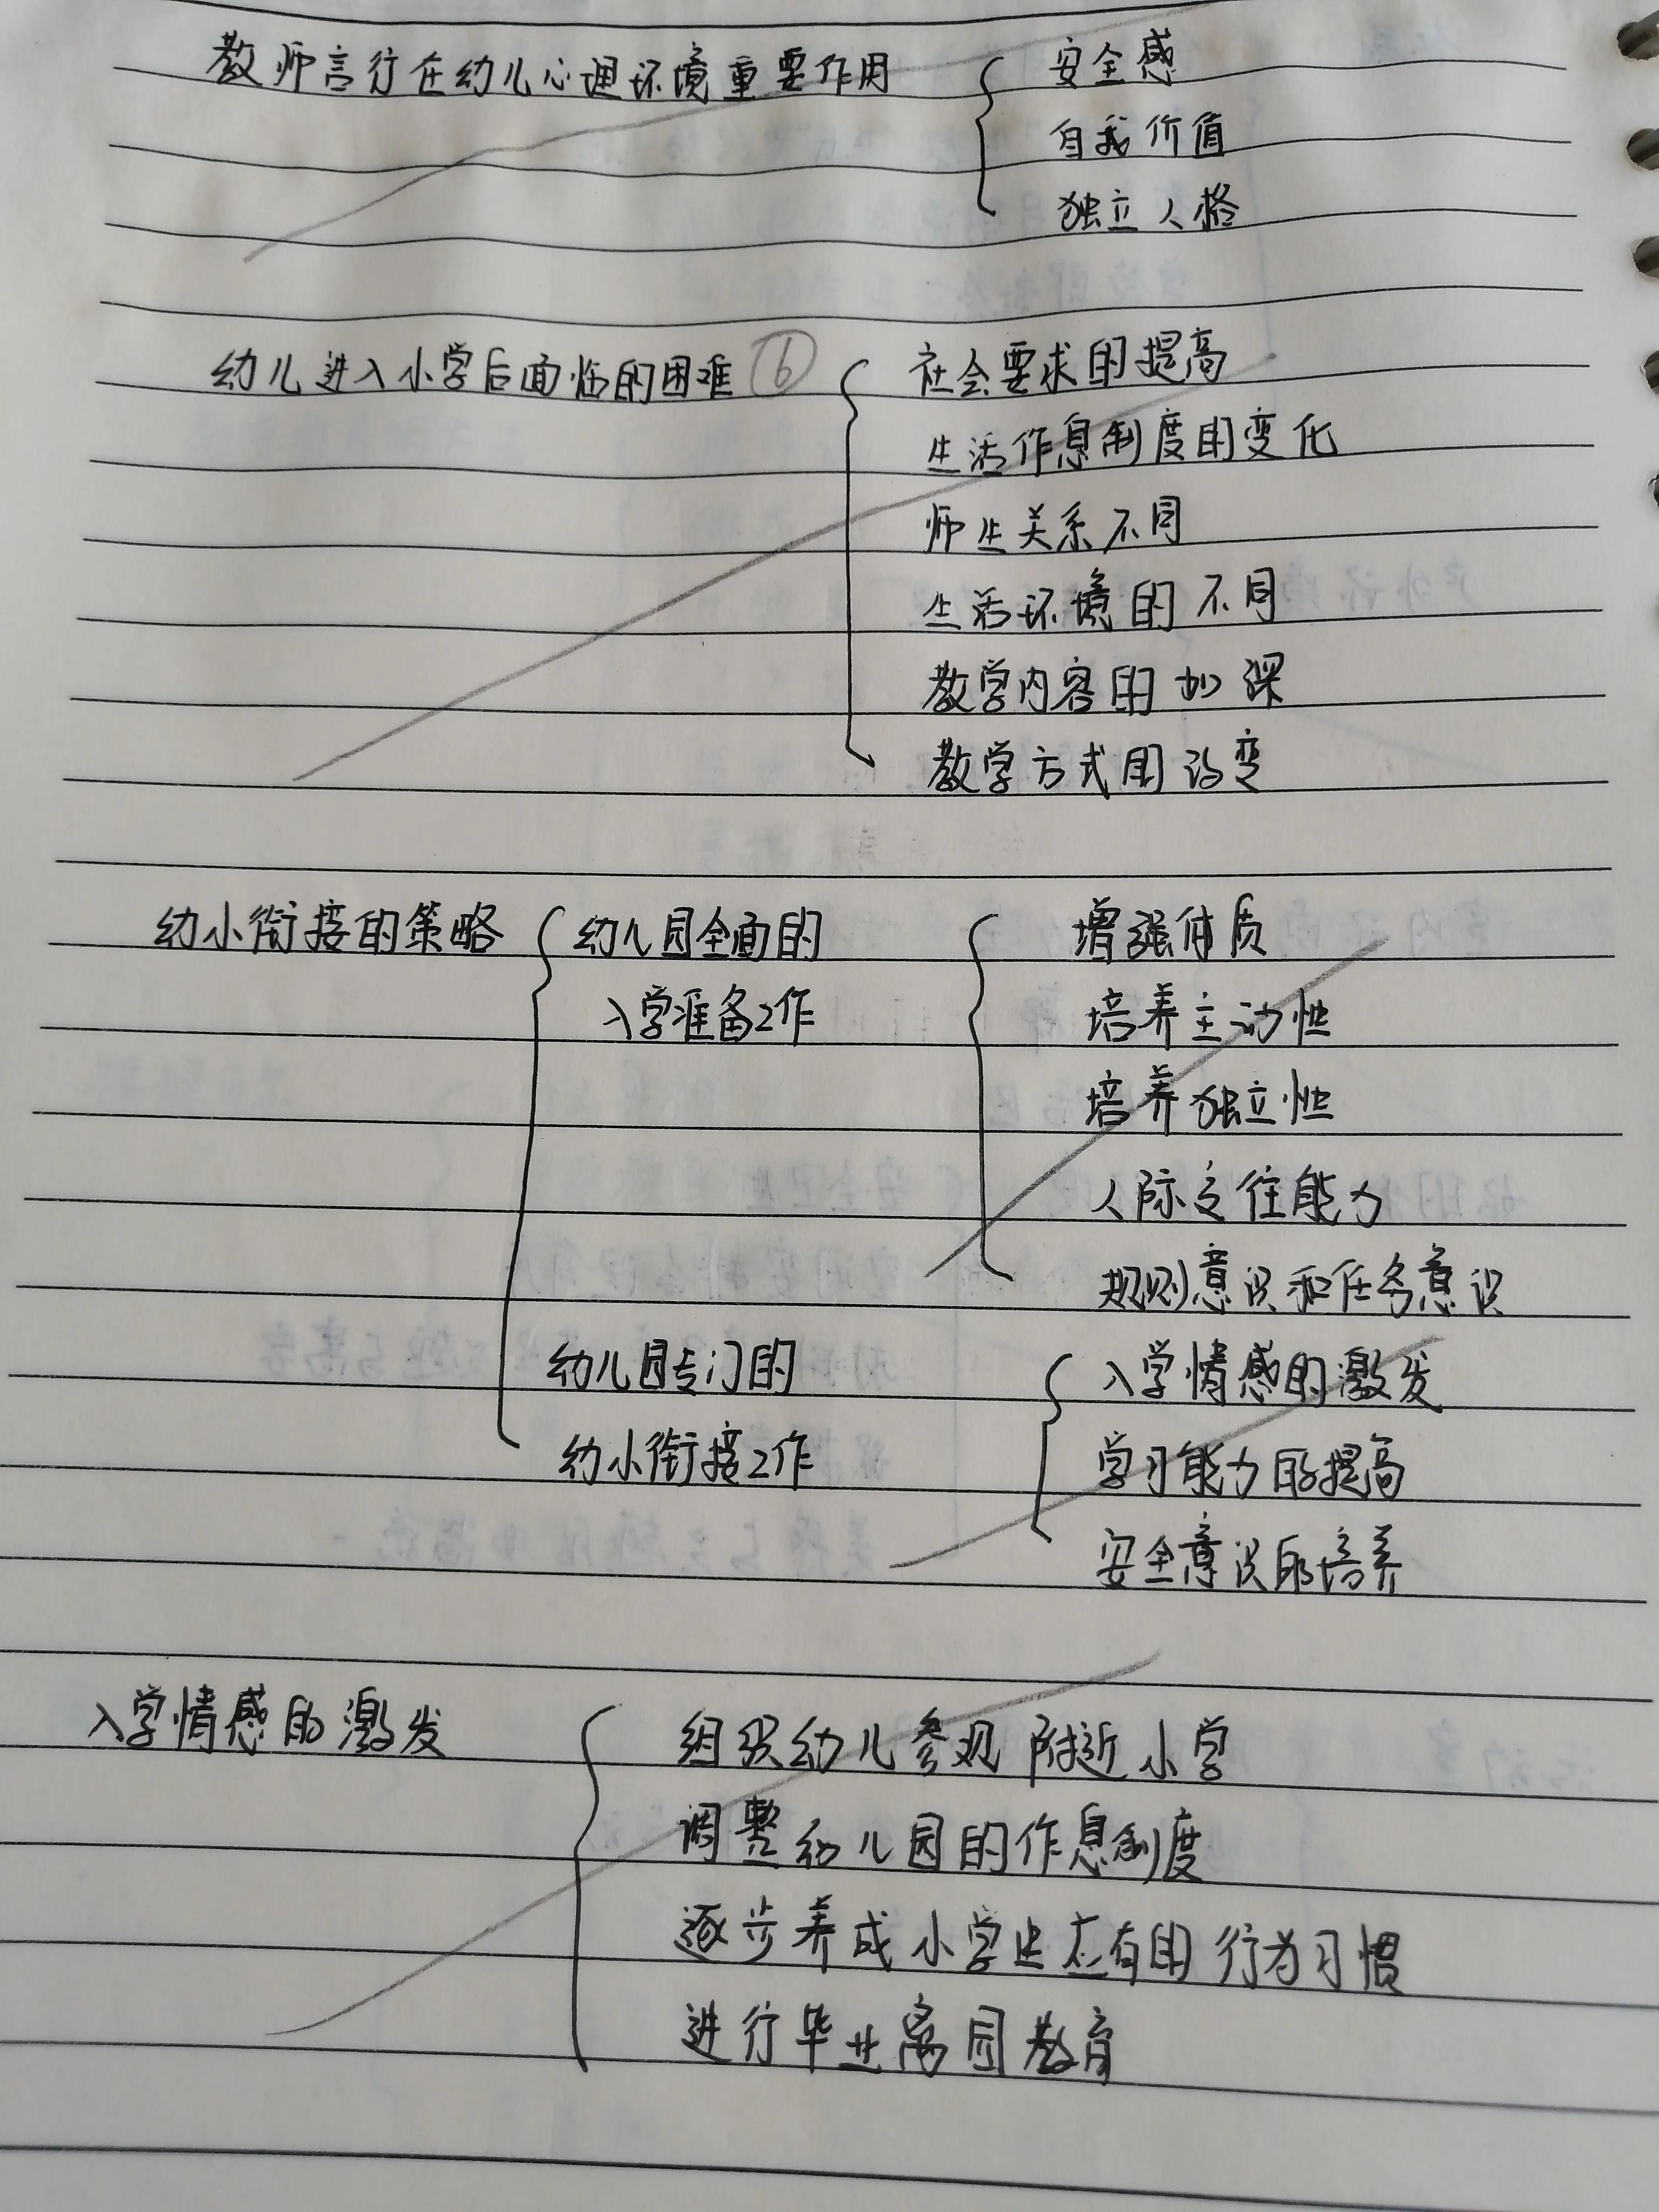 教师言行在幼儿心理环境重要作用
安全感
自我价值
独立人格
幼儿进入小学后面临的困难 ⑥
社会要求的提高
生活作息制度的变化
师生关系不同
生活环境的不同
教学内容的加深
教学方式的改变
幼小衔接的策略
幼儿园全面的
入学准备工作
增强体质
培养主动性
培养独立性
人际交往能力
规则意识和任务意识
幼儿园专门的
幼小衔接工作
入学情感的激发
学习能力的提高
安全意识的培养
入学情感的激发
组织幼儿参观附近小学
调整幼儿园的作息制度
逐步养成小学生应有的行为习惯
进行毕业离园教育